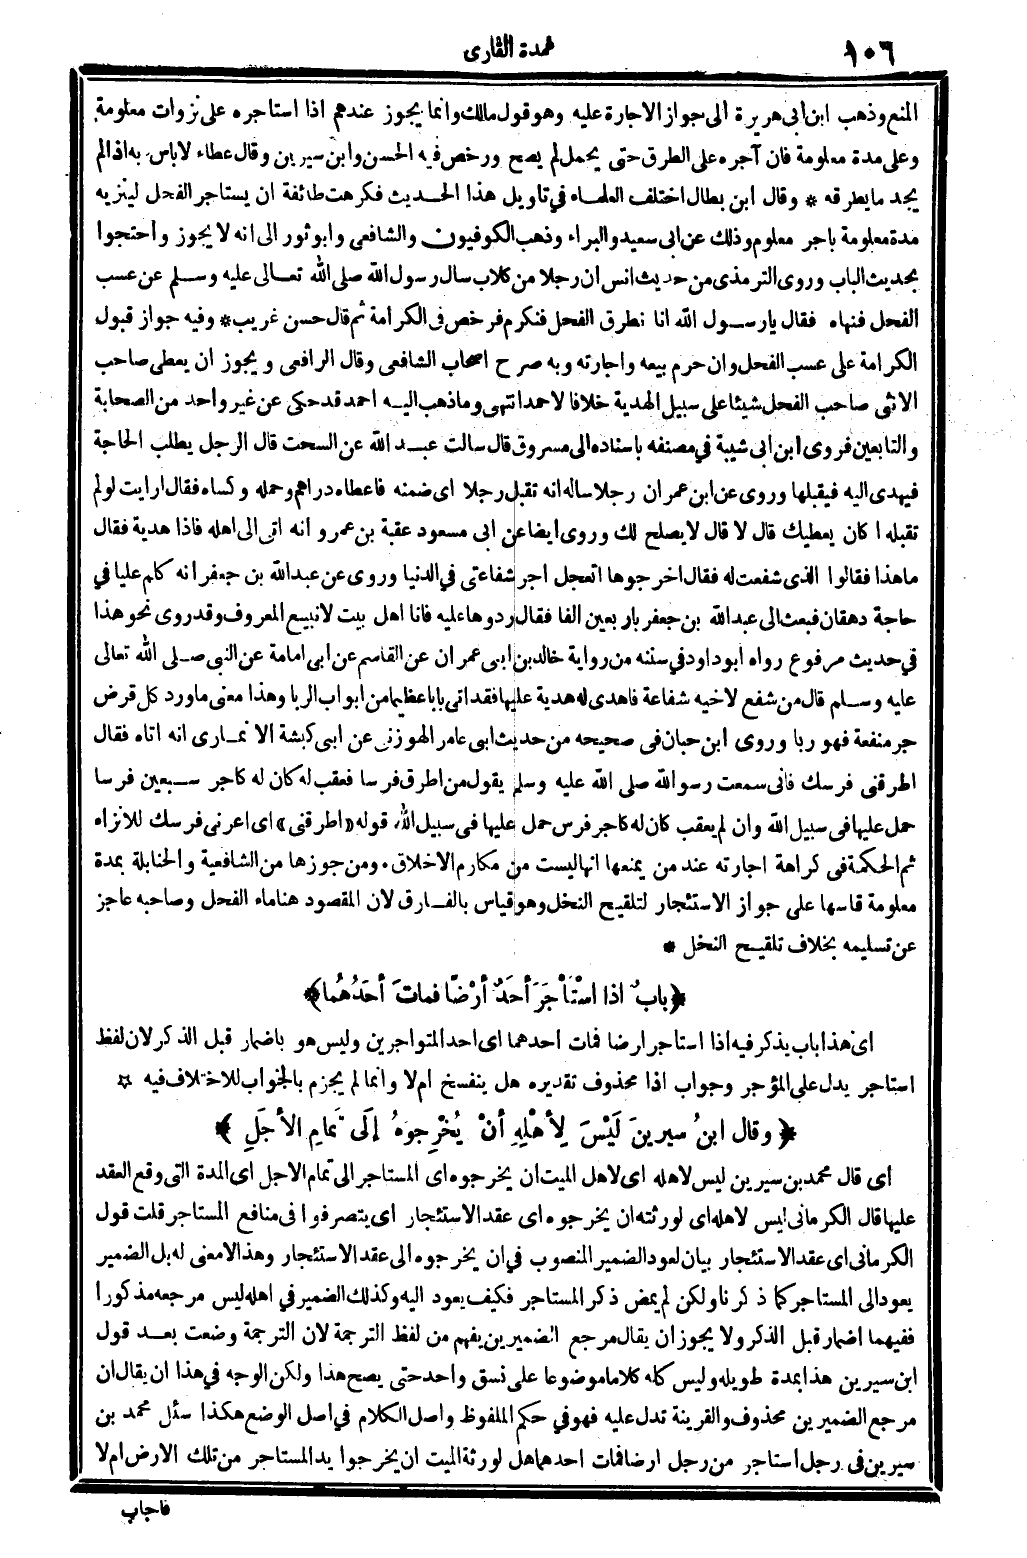 ١٠٦
عمدة القارى
المنع وذهب ابن أبى هريرة الى جواز الاجارة عليه وهو قول مالك وانما يجوز عندهم اذا استاجره على نزوات معلومة
وعلى مدة معلومة فان آجره على الطرق حتى يحمل لم يصح ورخص فيه الحسن وابن سيرين وقال عطاء لا باس به اذا لم
يجد ما يطرقه * وقال ابن بطال اختلف العلماء في تاويل هذا الحديث فكرهت طائفة ان يستاجر الفحل لينزيه
مدة معلومة باجر معلوم وذلك عن ابى سعيد والبراء وذهب الكوفيون والشافعى وابو ثور الى انه لا يجوز واحتجوا
بحديث الباب وروى الترمذى من حديث انس ان رجلا من كلاب سال رسول الله صلى الله تعالى عليه وسلم عن عسب
الفحل فنهاه فقال يا رسول الله انا نطرق الفحل فنكرم فرخص فى الكرامة ثم قال حسن غريب * وفيه جواز قبول
الكرامة على عسب الفحل وان حرم بيعه واجارته وبه صرح اصحاب الشافعى وقال الرافعى ويجوز ان يعطى صاحب
الانثى صاحب الفحل شيئا على سبيل الهدية خلافا لاحمد انتهى وما ذهب اليه احمد قد حكى عن غير واحد من الصحابة
والتابعين فروى ابن ابى شيبة في مصنفه باسناده الى مسروق قال سالت عبد الله عن السحت قال الرجل يطلب الحاجة
فيهدى اليه فيقبلها وروى عن ابن عمر ان رجلا ساله انه تقبل رجلا اى ضمنه فاعطاه دراهم وحمله وكساه فقال ارايت لو لم
تقبله ا كان يعطيك قال لا قال لا يصلح لك وروى ايضا عن ابى مسعود عقبة بن عمرو انه اتى الى اهله فاذا هدية فقال
ما هذا فقالوا الذى شفعت له فقال اخرجوها اتعجل اجر شفاعتى في الدنيا وروى عن عبدالله بن جعفر انه كلم عليا في
حاجة دهقان فبعث الى عبدالله بن جعفر باربعين الفا فقال ردوها عليه فانا اهل بيت لا نبيع المعروف وقد روى نحو هذا
في حديث مرفوع رواه ابو داود في سننه من رواية خالد بن ابى عمران عن القاسم عن ابى امامة عن النبى صلى الله تعالى
عليه وسلم قال من شفع لاخيه شفاعة فاهدى له هدية عليها فقد اتى بابا عظيما من ابواب الربا وهذا معنى ما ورد كل قرض
جر منفعة فهو ربا وروى ابن حبان فى صحيحه من حديث ابى عامر الهوزنى عن ابى كبشة الانمارى انه اتاه فقال
اطرقنى فرسك فانى سمعت رسو الله صلى الله عليه وسلم يقول من اطرق فرسا فعقب له كان له كاجر سبعين فرسا
حمل عليها فى سبيل الله وان لم يعقب كان له كاجر فرس حمل عليها فى سبيل الله. قوله «اطرقنى» اى اعرنى فرسك للانزاء
ثم الحكمة فى كراهة اجارته عند من يمنعها انها ليست من مكارم الاخلاق. ومن جوزها من الشافعية والحنابلة بمدة
معلومة قاسها على جواز الاستئجار لتلقيح النخل وهو قياس بالفارق لان المقصود هنا ماء الفحل وصاحبه عاجز
عن تسليمه بخلاف تلقيح النخل *
﴿بابٌ اذا اسْتَأْجَرَ أحَدٌ أرْضًا فماتَ أحَدُهُما﴾
اى هذا باب يذكر فيه اذا استاجر ارضا فمات احدهما اى احد المتواجرين وليس هو باضمار قبل الذكر لان لفظ
استاجر يدل على المؤجر وجواب اذا محذوف تقديره هل ينفسخ ام لا وانما لم يجزم بالجواب للاختلاف فيه ☆
﴿وقال ابنُ سيرينَ لَيْسَ لِأهْلِهِ أنْ يُخْرِجوهُ إلَى تَمامِ الأجَلِ﴾
اى قال محمد بن سيرين ليس لاهله اى لاهل الميت ان يخرجوه اى المستاجر الى تمام الاجل اى المدة التى وقع العقد
عليها قال الكرمانى ليس لاهله اى لورثته ان يخرجوه اى عقد الاستئجار اى يتصرفوا فى منافع المستاجر قلت قول
الكرمانى اى عقد الاستئجار بيان لعود الضمير المنصوب في ان يخرجوه الى عقد الاستئجار وهذا لا معنى له بل الضمير
يعود الى المستاجر كما ذكرنا ولكن لم يمض ذكر المستاجر فكيف يعود اليه وكذلك الضمير في اهله ليس مرجعه مذكورا
ففيهما اضمار قبل الذكر ولا يجوز ان يقال مرجع الضميرين يفهم من لفظ الترجمة لان الترجمة وضعت بعد قول
ابن سيرين هذا بمدة طويله وليس كله كلاما موضوعا على نسق واحد حتى يصح هذا ولكن الوجه في هذا ان يقال ان
مرجع الضميرين محذوف والقرينة تدل عليه فهو في حكم الملفوظ واصل الكلام في اصل الوضع هكذا سئل محمد بن
سيرين فى رجل استاجر من رجل ارضا فمات احدهما هل لورثة الميت ان يخرجوا يد المستاجر من تلك الارض ام لا
فاجاب